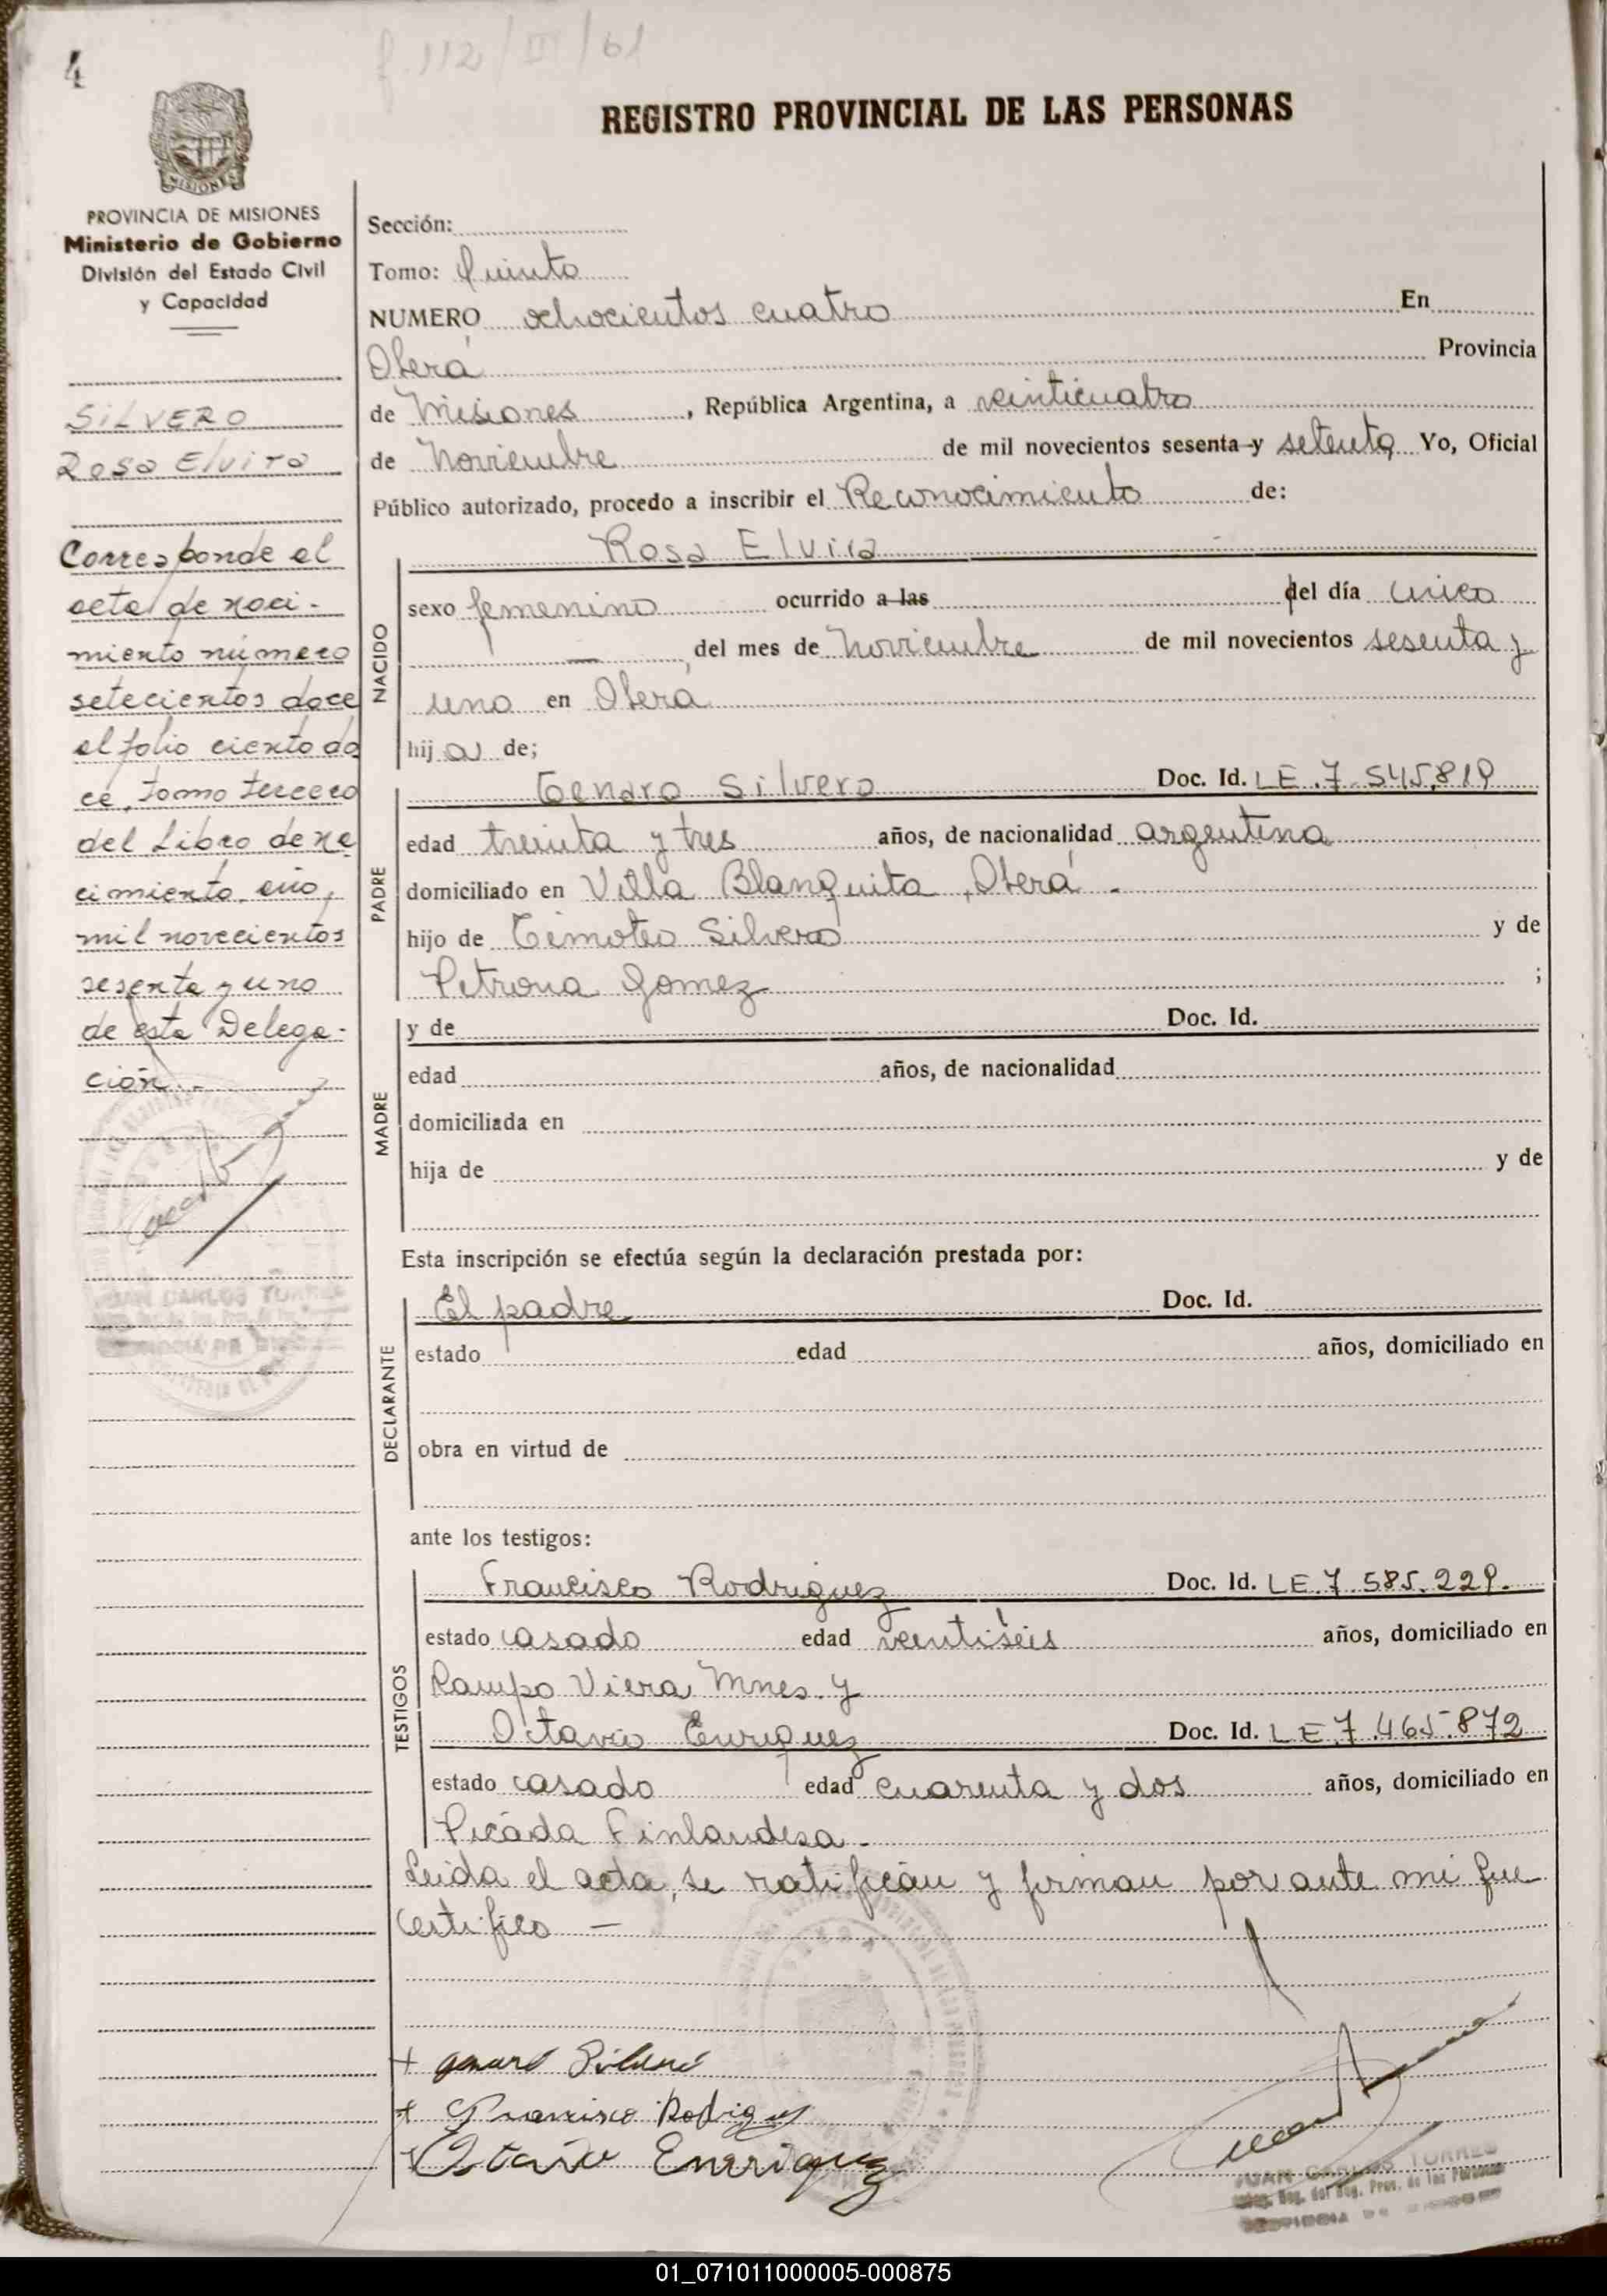 4
f. 112 / III / 61
REGISTRO PROVINCIAL DE LAS PERSONAS
MISIONES
PROVINCIA DE MISIONES
Ministerio de Gobierno
División del Estado Civil
y Capacidad
SILVERO
Rosa Elvira
Corresponde al
acta de naci-
miento número
setecientos doce
al folio ciento do
ce, tomo tercero
del Libro de na
cimiento, año,
mil novecientos
sesenta y uno
de esta Delega-
ción.-
JUAN CARLOS TORRES
Sección:
Tomo: Quinto
NUMERO ochocientos cuatro En
Oberá Provincia
de Misiones, República Argentina, a veinticuatro
de Noviembre de mil novecientos sesenta y setenta Yo, Oficial
Público autorizado, procedo a inscribir el Reconocimiento de:
NACIDO
Rosa Elvira
sexo femenino ocurrido a las del día cinco
— del mes de Noviembre de mil novecientos sesenta y
uno en Oberá
hija de;
PADRE
Genaro Silvero Doc. Id. LE.7.545.819
edad treinta y tres años, de nacionalidad argentina
domiciliado en Villa Blanquita, Oberá.
hijo de Timoteo Silvero y de
Petrona Gomez ;
MADRE
y de Doc. Id.
edad años, de nacionalidad
domiciliada en
hija de y de
Esta inscripción se efectúa según la declaración prestada por:
DECLARANTE
El padre Doc. Id.
estado edad años, domiciliado en
obra en virtud de
ante los testigos:
TESTIGOS
Francisco Rodriguez Doc. Id. LE.7.585.229.
estado casado edad veintiseis años, domiciliado en
Campo Viera Mnes. y
Octavio Enriquez Doc. Id. LE.7.465.872
estado casado edad cuarenta y dos años, domiciliado en
Picada Finlandesa.
Leida el acta, se ratifican y firman por ante mi que
certifico —
+ Genaro Silvero
+ Francisco Rodriguez
+ Octavio Enrriquez
JUAN CARLOS TORRES
Reg. del Reg. Prov. de las Personas
01_071011000005-000875